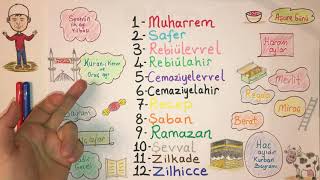 1- Muharrem
2- Safer
3- Rebiülevvel
4- Rebiülahir
5- Cemaziyelevvel
6- Cemaziyelahir
7- Recep
8- Şaban
9- Ramazan
10- Şevval
11- Zilkade
12- Zilhicce
Kuran-ı Kerim
ve
Oruç ayı
Aşure günü
Haram
aylar
Mevlit
Regaip
Miraç
Berat
Hac
ayıdır
Kurban
Bayramı